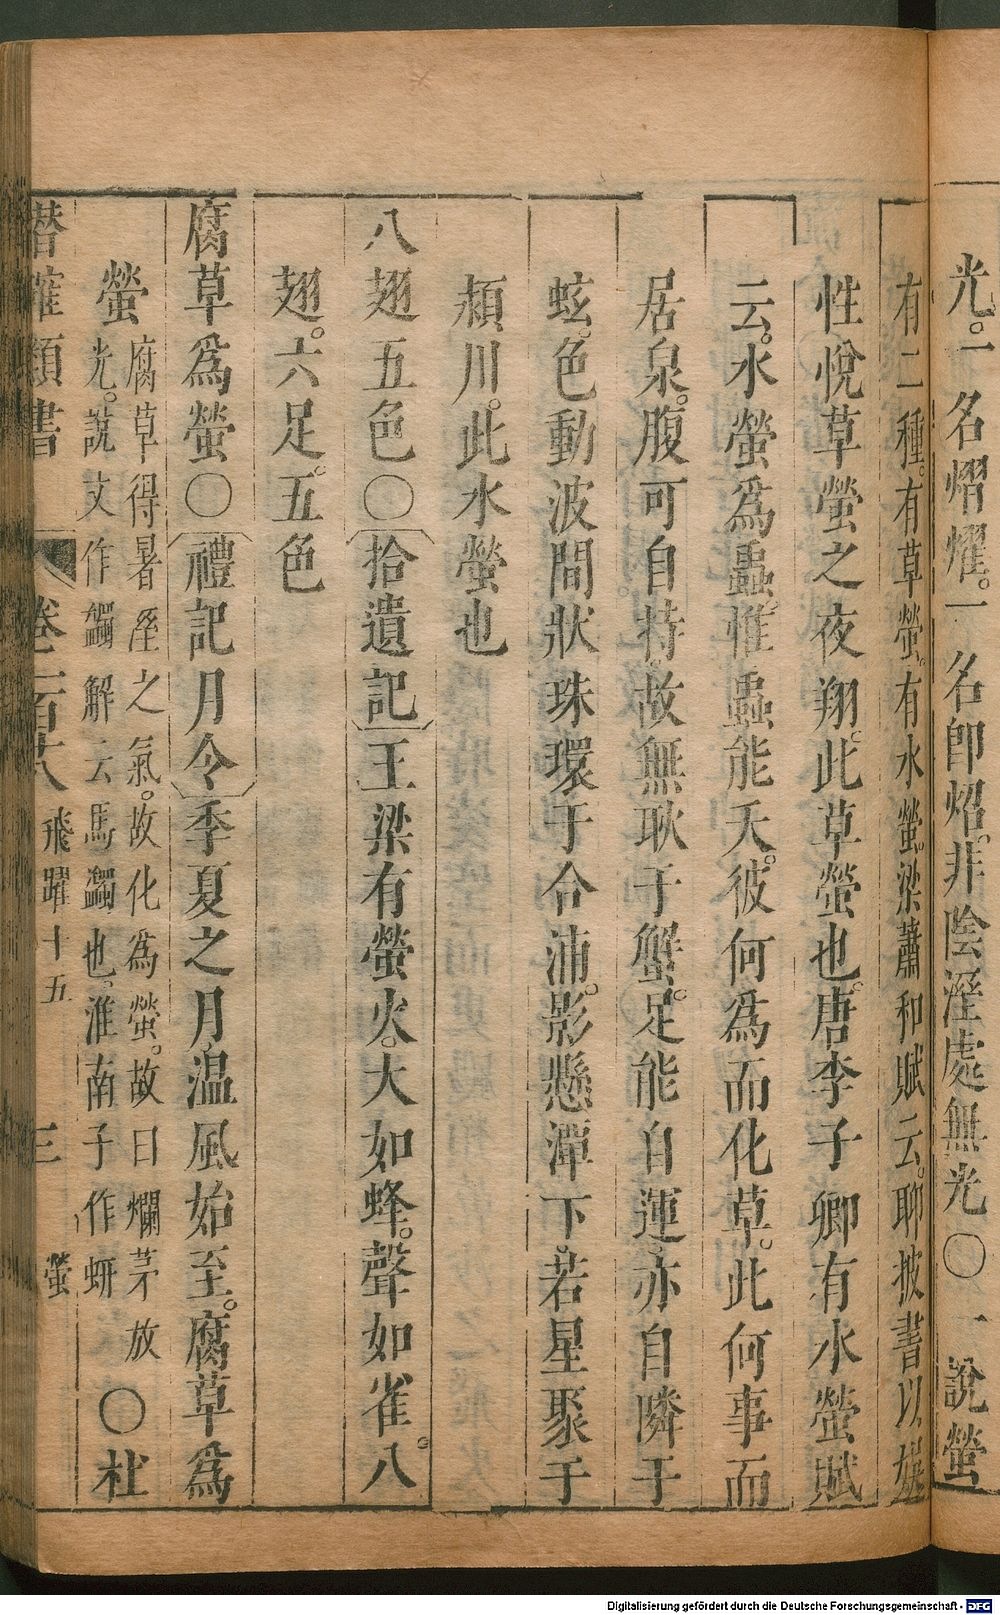 光。一名熠燿。一名即炤。非陰溼處無光〇一說螢
有二種。有草螢。有水螢。梁蕭和賦云。聊披書以娛
性悅草螢之夜翔。此草螢也。唐李子卿有水螢賦
云。水螢為蟲。惟蟲能天。彼何為而化草。此何事而
居泉。腹可自持。故無耿于蟹。足能自運。亦自隣于
蚿。色動波間狀珠環于合浦。影懸潭下。若星聚于
潁川。此水螢也
八翅五色〇拾遺記王梁有螢火。大如蜂。聲如雀。八
翅。六足。五色
腐草為螢〇禮記月令季夏之月。温風始至。腐草為
螢腐草得暑溼之氣。故化為螢。故曰爛茅放
光。說文作蠲解云馬蠲也。淮南子作蚈〇杜
潛確類書 卷一百十八 飛躍十五 三 螢
Digitalisierung gefördert durch die Deutsche Forschungsgemeinschaft - DFG